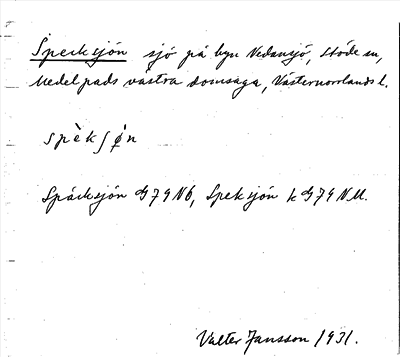 Specksjön sjö på byn Vedansjö, Stöde sn,
Medelpads västra domsaga, Västernorrlands l.
spèkʃø̀n
Späcksjön G79NÖ, Speksjön k G79NU.
Valter Jansson 1931.